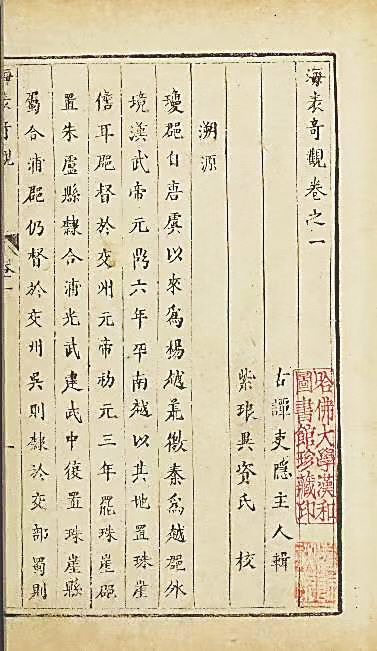 海表奇觀卷之一
古譚吏隱主人輯
紫琅異資氏 校
溯源
瓊郡自唐虞以來為楊越荒徼秦為越郡外
境漢武帝元鼎六年平南越以其地置珠崖
儋耳郡督於交州元帝初元三年罷珠崖郡
置朱盧縣隸合浦光武建武中復置珠崖縣
屬合浦郡仍督於交州吳則隸於交部蜀則
海表奇觀
卷一
一
哈佛大學漢和
圖書館珍藏印